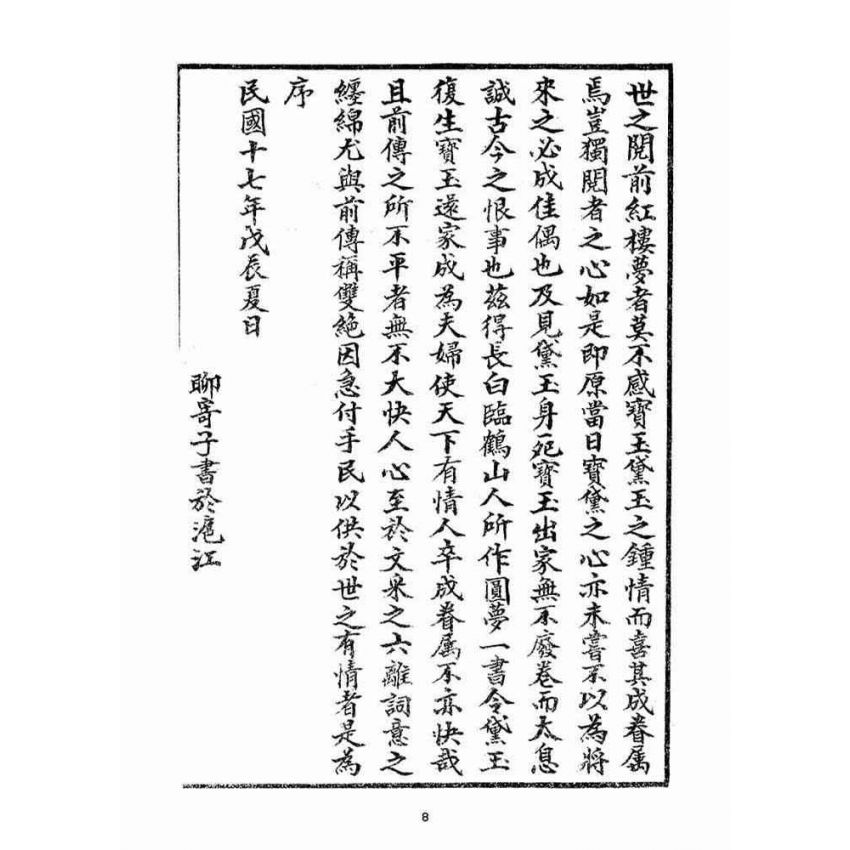 世之閱前紅樓夢者莫不感寶玉黛玉之鍾情而喜其成眷属
焉豈獨閱者之心如是即原當日寶黛之心亦未嘗不以為將
來之必成佳偶也及見黛玉身死寶玉出家無不廢卷而太息
誠古今之恨事也茲得長白臨鶴山人所作圓夢一書令黛玉
復生寶玉還家成為夫婦使天下有情人卒成眷属不亦快哉
且前傳之所不平者無不大快人心至於文采之六離詞意之
纏綿尤與前傳稱雙絕因急付手民以供於世之有情者是為
序
民國十七年戊辰夏日
聊寄子書於滬江
8